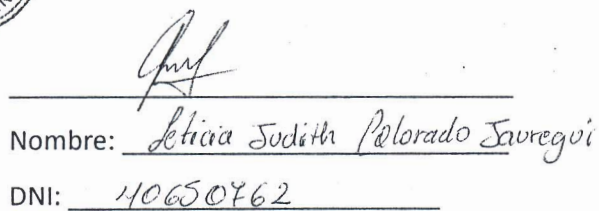 Nombre: Leticia Judith Colorado Jauregui
DNI: 40650762